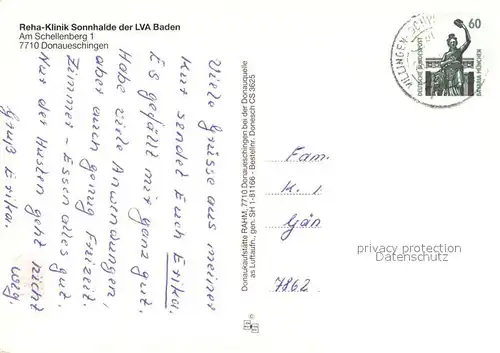 Reha-Klinik Sonnhalde der LVA Baden
Am Schellenberg 1
7710 Donaueschingen
Viele Grüsse aus meiner
Kur sendet Euch Erika.
Es gefällt mir ganz gut.
Habe viele Anwendungen,
aber auch genug Freizeit.
Zimmer - Essen alles gut.
Nur der Husten geht nicht
weg.
Gruß Erika.
Donaukaufstätte RAHM, 7710 Donaueschingen bei der Donauquelle
as Luftaufn., gen. SH 1-81166 - Bestellnr. Donesch CS 3625
VILLINGEN-SCHW
60
DEUTSCHE BUNDESPOST
BAVARIA MÜNCHEN
Fam.
K. 1
Gän
7862
privacy protection
Datenschutz